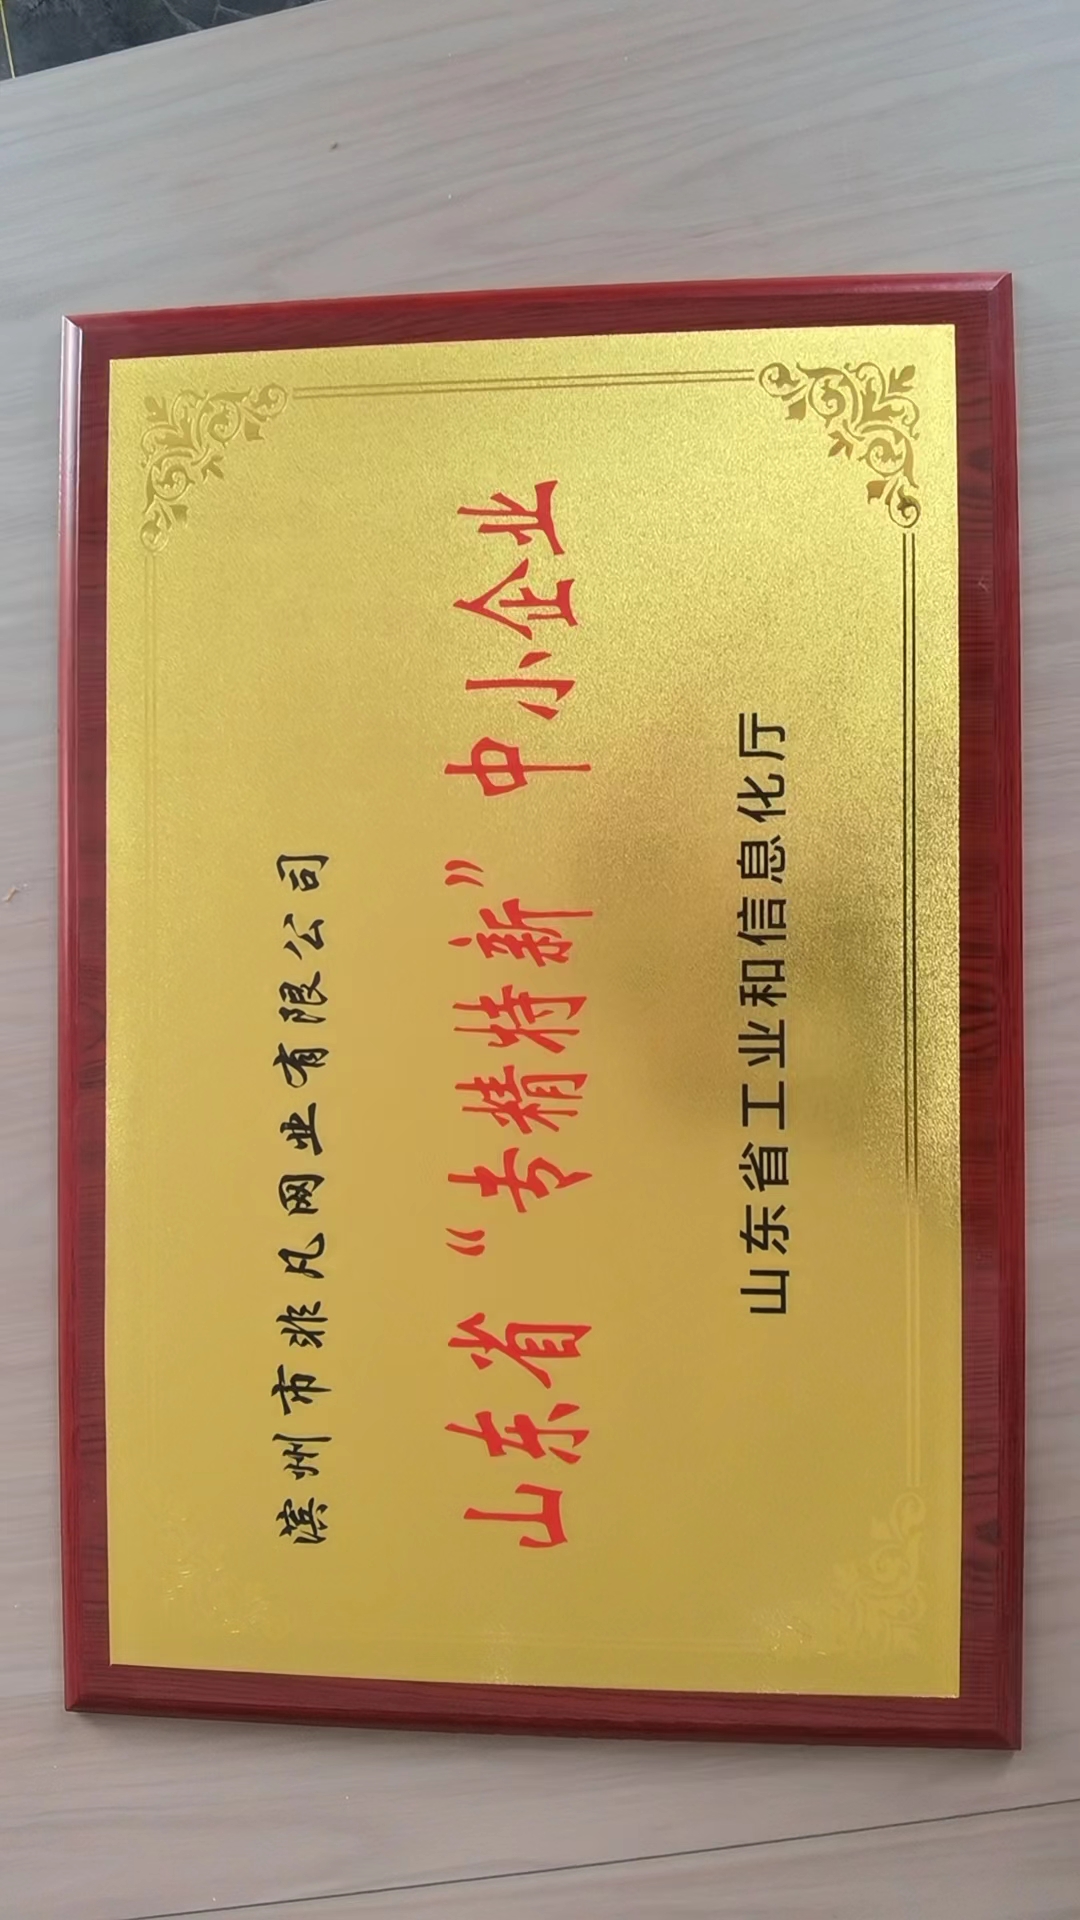 滨州市非凡网业有限公司
山东省“专精特新”中小企业
山东省工业和信息化厅